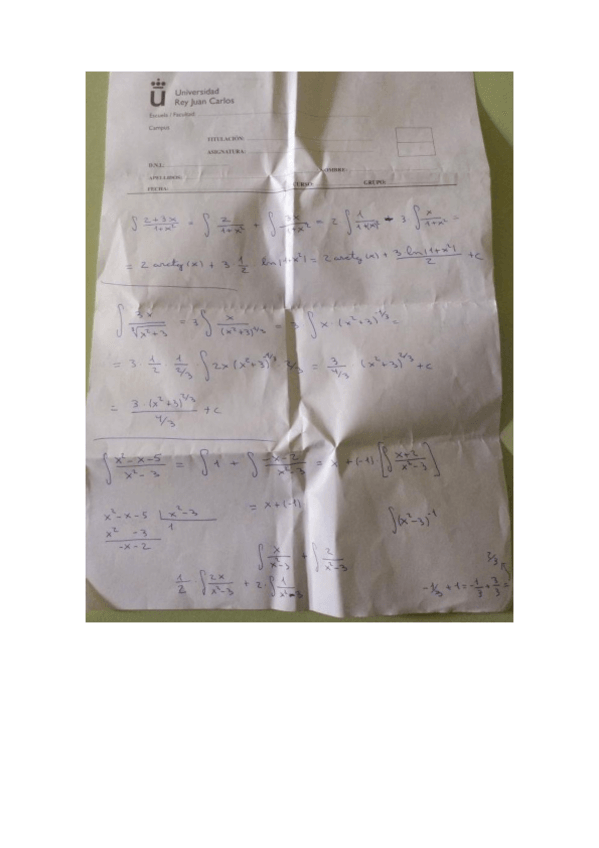 Universidad
Rey Juan Carlos
Escuela / Facultad
Campus
TITULACIÓN:
ASIGNATURA:
D.N.I.:
APELLIDOS: NOMBRE:
FECHA: CURSO: GRUPO:
∫ (2+3x)/(1+x²) = ∫ 2/(1+x²) + ∫ 3x/(1+x²) = 2 ∫ 1/(1+x²) + 3 ∫ x/(1+x²) =
= 2 arctg(x) + 3 1/2 ln|1+x²| = 2 arctg(x) + 3 ln|1+x²|/2 + c
∫ 3x/∛(x²+3) = 3 ∫ x/(x²+3)^(1/3) = 3 ∫ x · (x²+3)^(-1/3) =
= 3 · 1/2 · 1/(2/3) ∫ 2x (x²+3)^(-1/3) · 2/3 = 3/(4/3) · (x²+3)^(2/3) + c
= 3 · (x²+3)^(2/3)/(4/3) + c
∫ (x²-x-5)/(x²-3) = ∫ 1 + ∫ (-x-2)/(x²-3) = x + (-1) [∫ (x+2)/(x²-3)]
x²-x-5 | x²-3
x² -3 1
-x-2
= x + (-1)
∫ (x²-3)^-1
∫ x/(x²-3) + ∫ 2/(x²-3)
1/2 · ∫ 2x/(x²-3) + 2 · ∫ 1/(x²-3)
2/3
-1/3 + 1 = -1/3 + 3/3 =